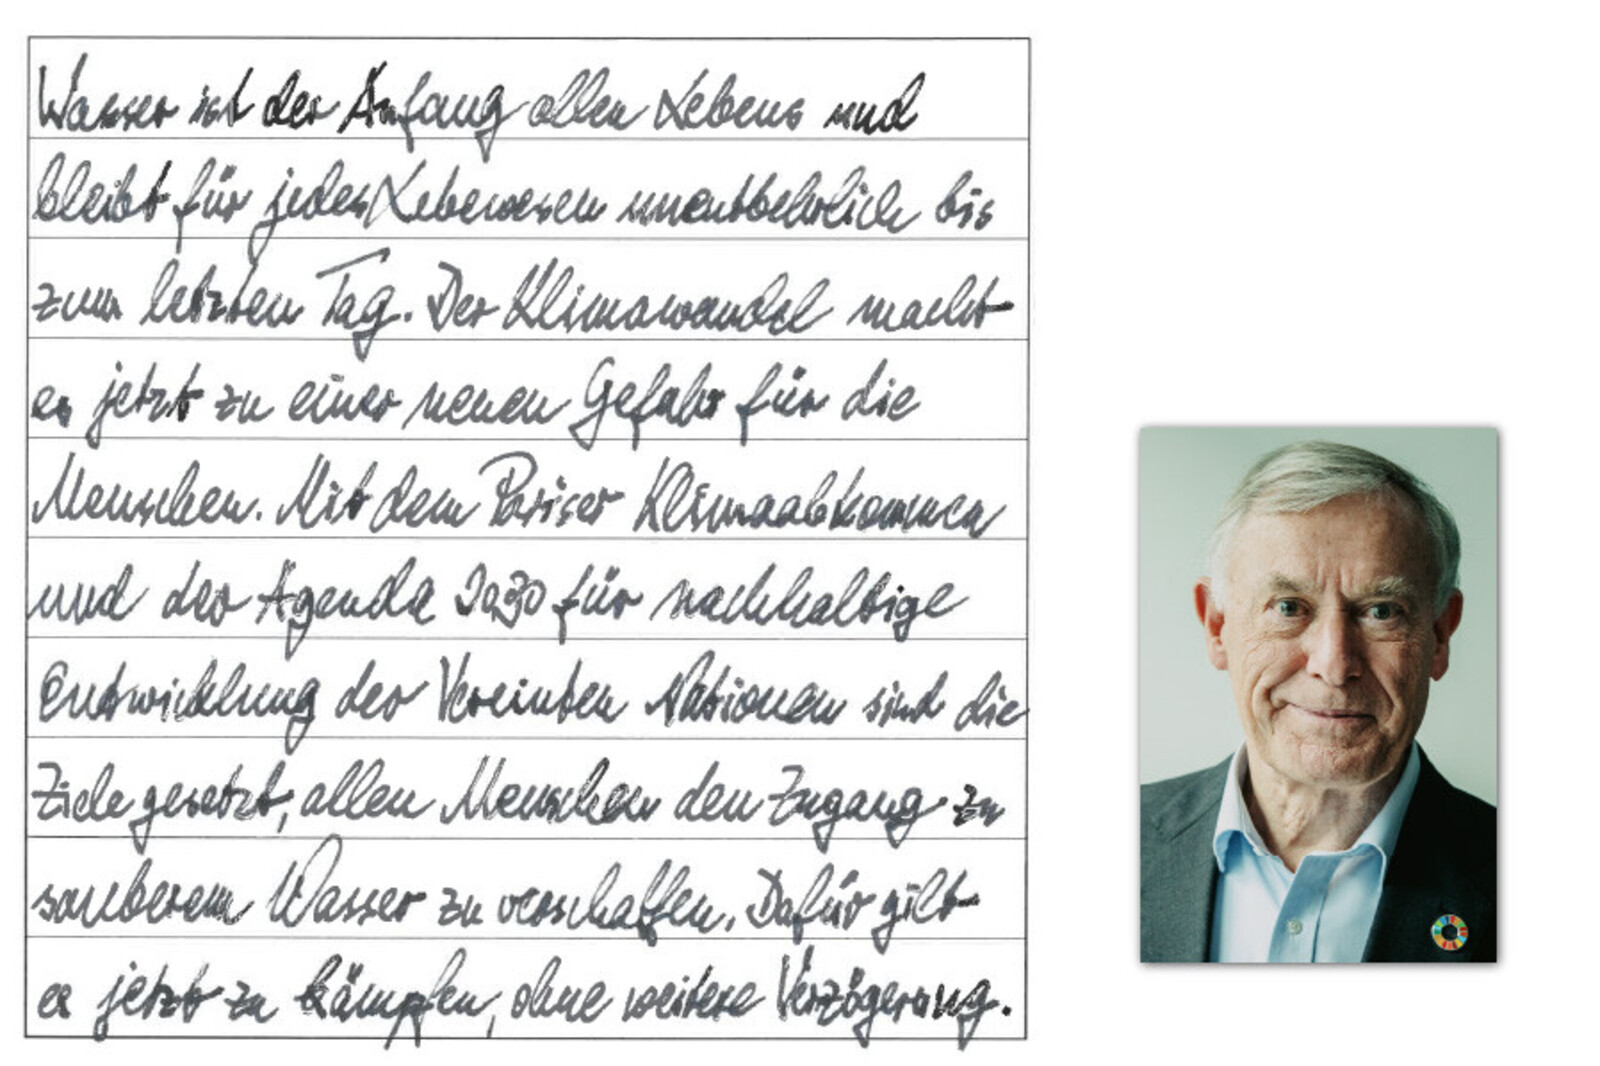 Wasser ist der Anfang allen Lebens und
bleibt für jedes Lebewesen unentbehrlich bis
zum letzten Tag. Der Klimawandel macht
es jetzt zu einer neuen Gefahr für die
Menschen. Mit dem Pariser Klimaabkommen
und der Agenda 2030 für nachhaltige
Entwicklung der Vereinten Nationen sind die
Ziele gesetzt, allen Menschen den Zugang zu
sauberem Wasser zu verschaffen. Dafür gilt
es jetzt zu kämpfen, ohne weitere Verzögerung.